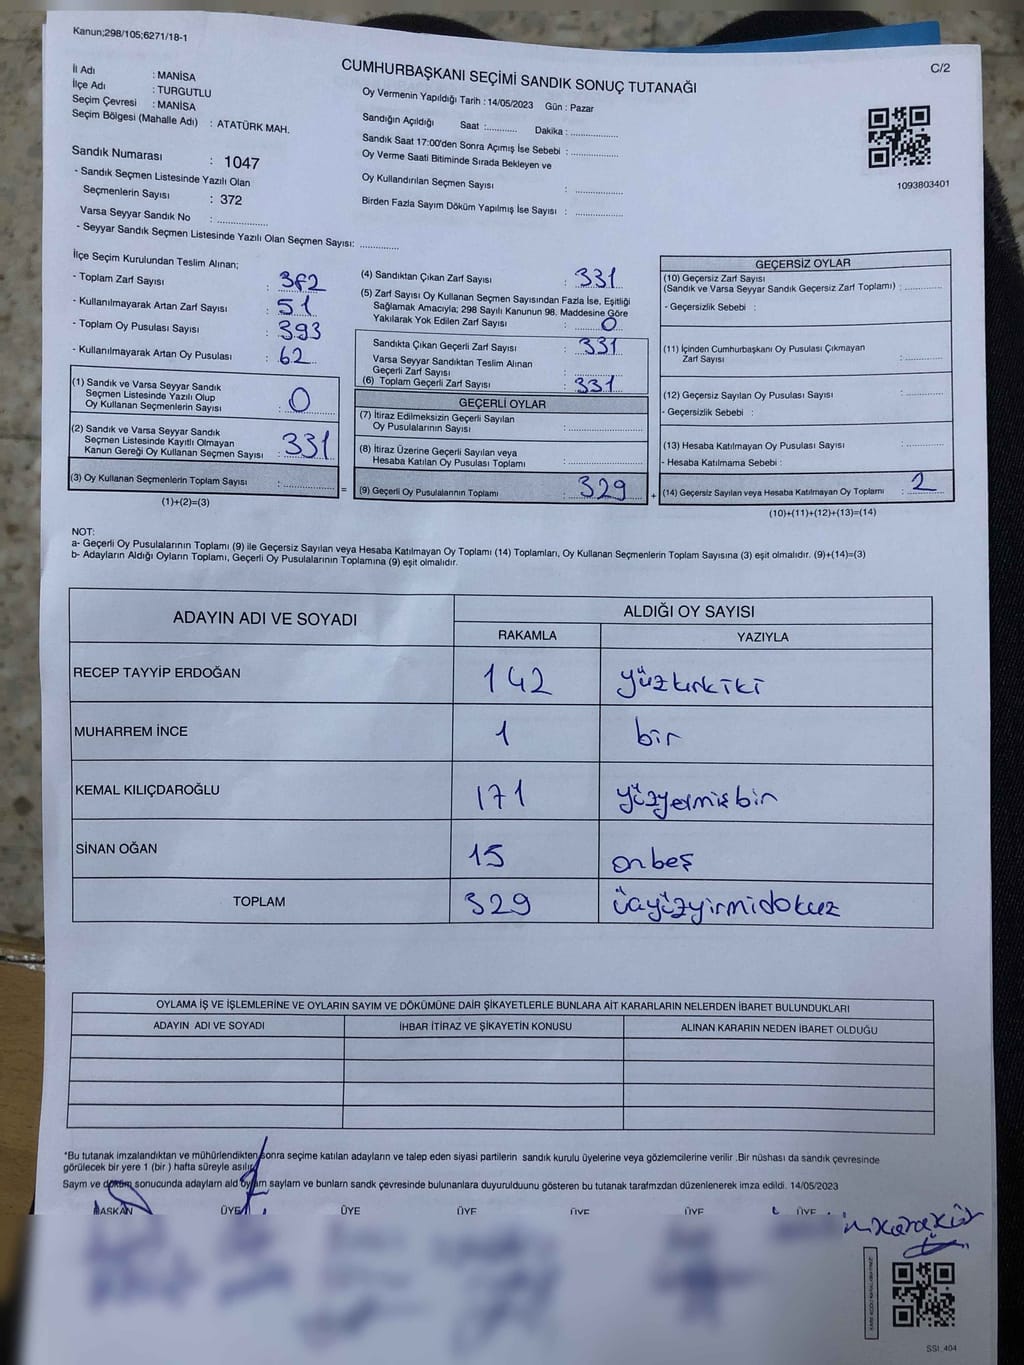 Kanun;298/105;6271/18-1
C/2
CUMHURBAŞKANI SEÇİMİ SANDIK SONUÇ TUTANAĞI
İl Adı : MANİSA
İlçe Adı : TURGUTLU
Seçim Çevresi : MANİSA
Seçim Bölgesi (Mahalle Adı) : ATATÜRK MAH.
Sandık Numarası : 1047
- Sandık Seçmen Listesinde Yazılı Olan
Seçmenlerin Sayısı : 372
Varsa Seyyar Sandık No : ..............
- Seyyar Sandık Seçmen Listesinde Yazılı Olan Seçmen Sayısı: ............
Oy Vermenin Yapıldığı Tarih : 14/05/2023 Gün : Pazar
Sandığın Açıldığı Saat :......... Dakika : ..............
Sandık Saat 17:00'den Sonra Açımış İse Sebebi : ..............
Oy Verme Saati Bitiminde Sırada Bekleyen ve
Oy Kullandırılan Seçmen Sayısı : ..............
Birden Fazla Sayım Döküm Yapılmış İse Sayısı : ..............
1093803401
İlçe Seçim Kurulundan Teslim Alınan;
- Toplam Zarf Sayısı : 382
- Kullanılmayarak Artan Zarf Sayısı : 51
- Toplam Oy Pusulası Sayısı : 393
- Kullanılmayarak Artan Oy Pusulası : 62
(1) Sandık ve Varsa Seyyar Sandık
Seçmen Listesinde Yazılı Olup
Oy Kullanan Seçmenlerin Sayısı : 0
(2) Sandık ve Varsa Seyyar Sandık
Seçmen Listesinde Kayıtlı Olmayan
Kanun Gereği Oy Kullanan Seçmen Sayısı : 331
(3) Oy Kullanan Seçmenlerin Toplam Sayısı : ..............
(1)+(2)=(3)
=
(4) Sandıktan Çıkan Zarf Sayısı : 331
(5) Zarf Sayısı Oy Kullanan Seçmen Sayısından Fazla İse, Eşitliği
Sağlamak Amacıyla; 298 Sayılı Kanunun 98. Maddesine Göre
Yakılarak Yok Edilen Zarf Sayısı : 0
Sandıkta Çıkan Geçerli Zarf Sayısı : 331
Varsa Seyyar Sandıktan Teslim Alınan
Geçerli Zarf Sayısı : ..............
(6) Toplam Geçerli Zarf Sayısı : 331
GEÇERLİ OYLAR
(7) İtiraz Edilmeksizin Geçerli Sayılan
Oy Pusulalarının Sayısı : ..............
(8) İtiraz Üzerine Geçerli Sayılan veya
Hesaba Katılan Oy Pusulası Toplamı : ..............
(9) Geçerli Oy Pusulalarının Toplamı : 329
+
GEÇERSİZ OYLAR
(10) Geçersiz Zarf Sayısı
(Sandık ve Varsa Seyyar Sandık Geçersiz Zarf Toplamı) : ............
- Geçersizlik Sebebi :
(11) İçinden Cumhurbaşkanı Oy Pusulası Çıkmayan
Zarf Sayısı : ............
(12) Geçersiz Sayılan Oy Pusulası Sayısı : ............
- Geçersizlik Sebebi :
(13) Hesaba Katılmayan Oy Pusulası Sayısı : ............
- Hesaba Katılmama Sebebi :
(14) Geçersiz Sayılan veya Hesaba Katılmayan Oy Toplamı : 2
(10)+(11)+(12)+(13)=(14)
NOT:
a- Geçerli Oy Pusulalarının Toplamı (9) ile Geçersiz Sayılan veya Hesaba Katılmayan Oy Toplamı (14) Toplamları, Oy Kullanan Seçmenlerin Toplam Sayısına (3) eşit olmalıdır. (9)+(14)=(3)
b- Adayların Aldığı Oyların Toplamı, Geçerli Oy Pusulalarının Toplamına (9) eşit olmalıdır.
ADAYIN ADI VE SOYADI
ALDIĞI OY SAYISI
RAKAMLA YAZIYLA
RECEP TAYYİP ERDOĞAN 142 yüzkırkiki
MUHARREM İNCE 1 bir
KEMAL KILIÇDAROĞLU 171 yüzyetmişbir
SİNAN OĞAN 15 onbeş
TOPLAM 329 üçyüzyirmidokuz
OYLAMA İŞ VE İŞLEMLERİNE VE OYLARIN SAYIM VE DÖKÜMÜNE DAİR ŞİKAYETLERLE BUNLARA AİT KARARLARIN NELERDEN İBARET BULUNDUKLARI
ADAYIN ADI VE SOYADI İHBAR İTİRAZ VE ŞİKAYETİN KONUSU ALINAN KARARIN NEDEN İBARET OLDUĞU
*Bu tutanak imzalandıktan ve mühürlendikten sonra seçime katılan adayların ve talep eden siyasi partilerin sandık kurulu üyelerine veya gözlemcilerine verilir .Bir nüshası da sandık çevresinde
görülecek bir yere 1 (bir ) hafta süreyle asılır.
Sayım ve döküm sonucunda adayların ald oyların sayları ve bunların sandk çevresinde bulunanlara duyurulduunu gösteren bu tutanak tarafmzdan düzenlenerek imza edildi. 14/05/2023
BAŞKAN ÜYE ÜYE ÜYE ÜYE ÜYE ÜYE
SSI_404